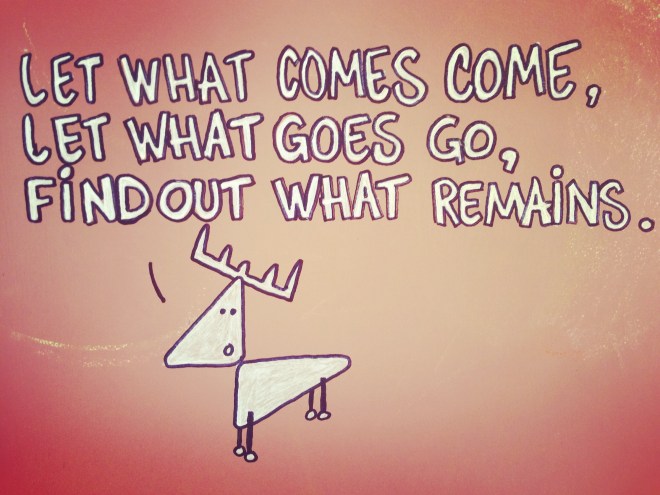 LET WHAT COMES COME,
LET WHAT GOES GO,
FIND OUT WHAT REMAINS.